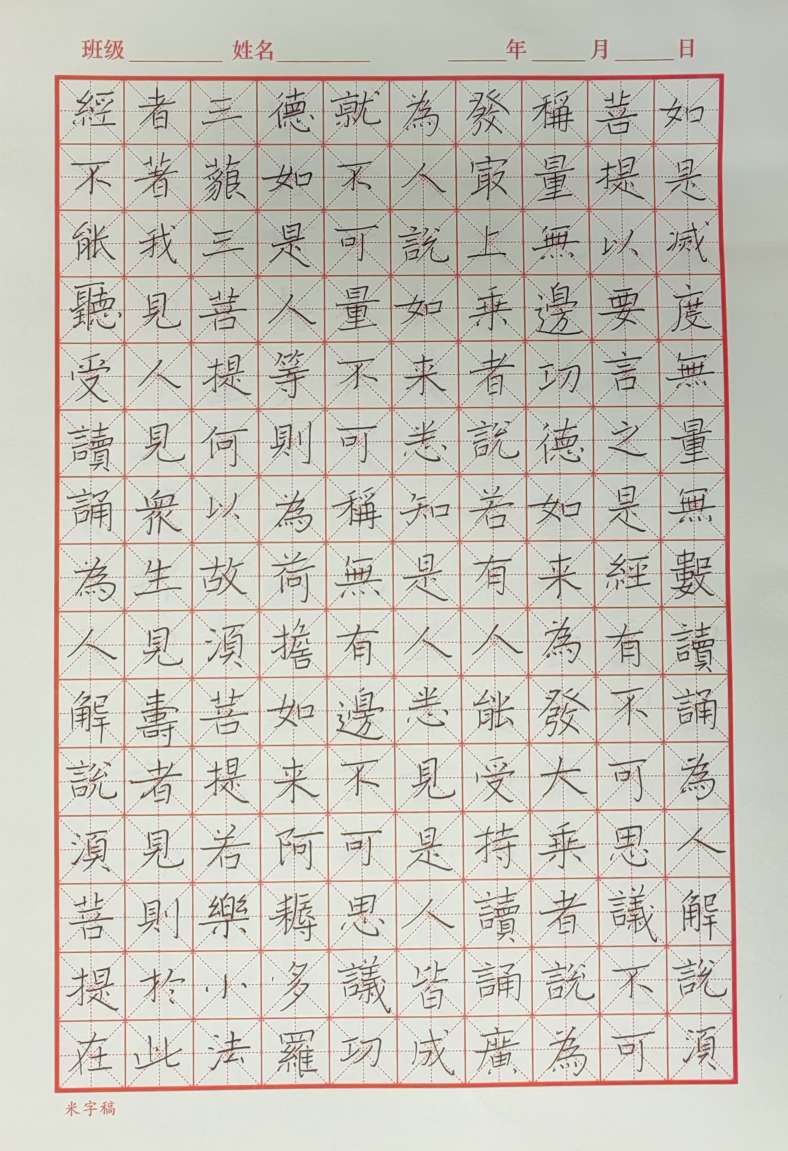 班级 姓名 年 月 日
如是滅度無量無數讀誦為人解說須
菩提以要言之是經有不可思議不可
稱量無邊功德如来為發大乗者說為
發冣上乗者說若有人能受持讀誦廣
為人說如来悉知是人悉見是人皆成
就不可量不可稱無有邊不可思議功
德如是人等則為荷擔如来阿耨多羅
三藐三菩提何以故須菩提若樂小法
者著我見人見衆生見壽者見則於此
經不能聽受讀誦為人解說須菩提在
米字稿